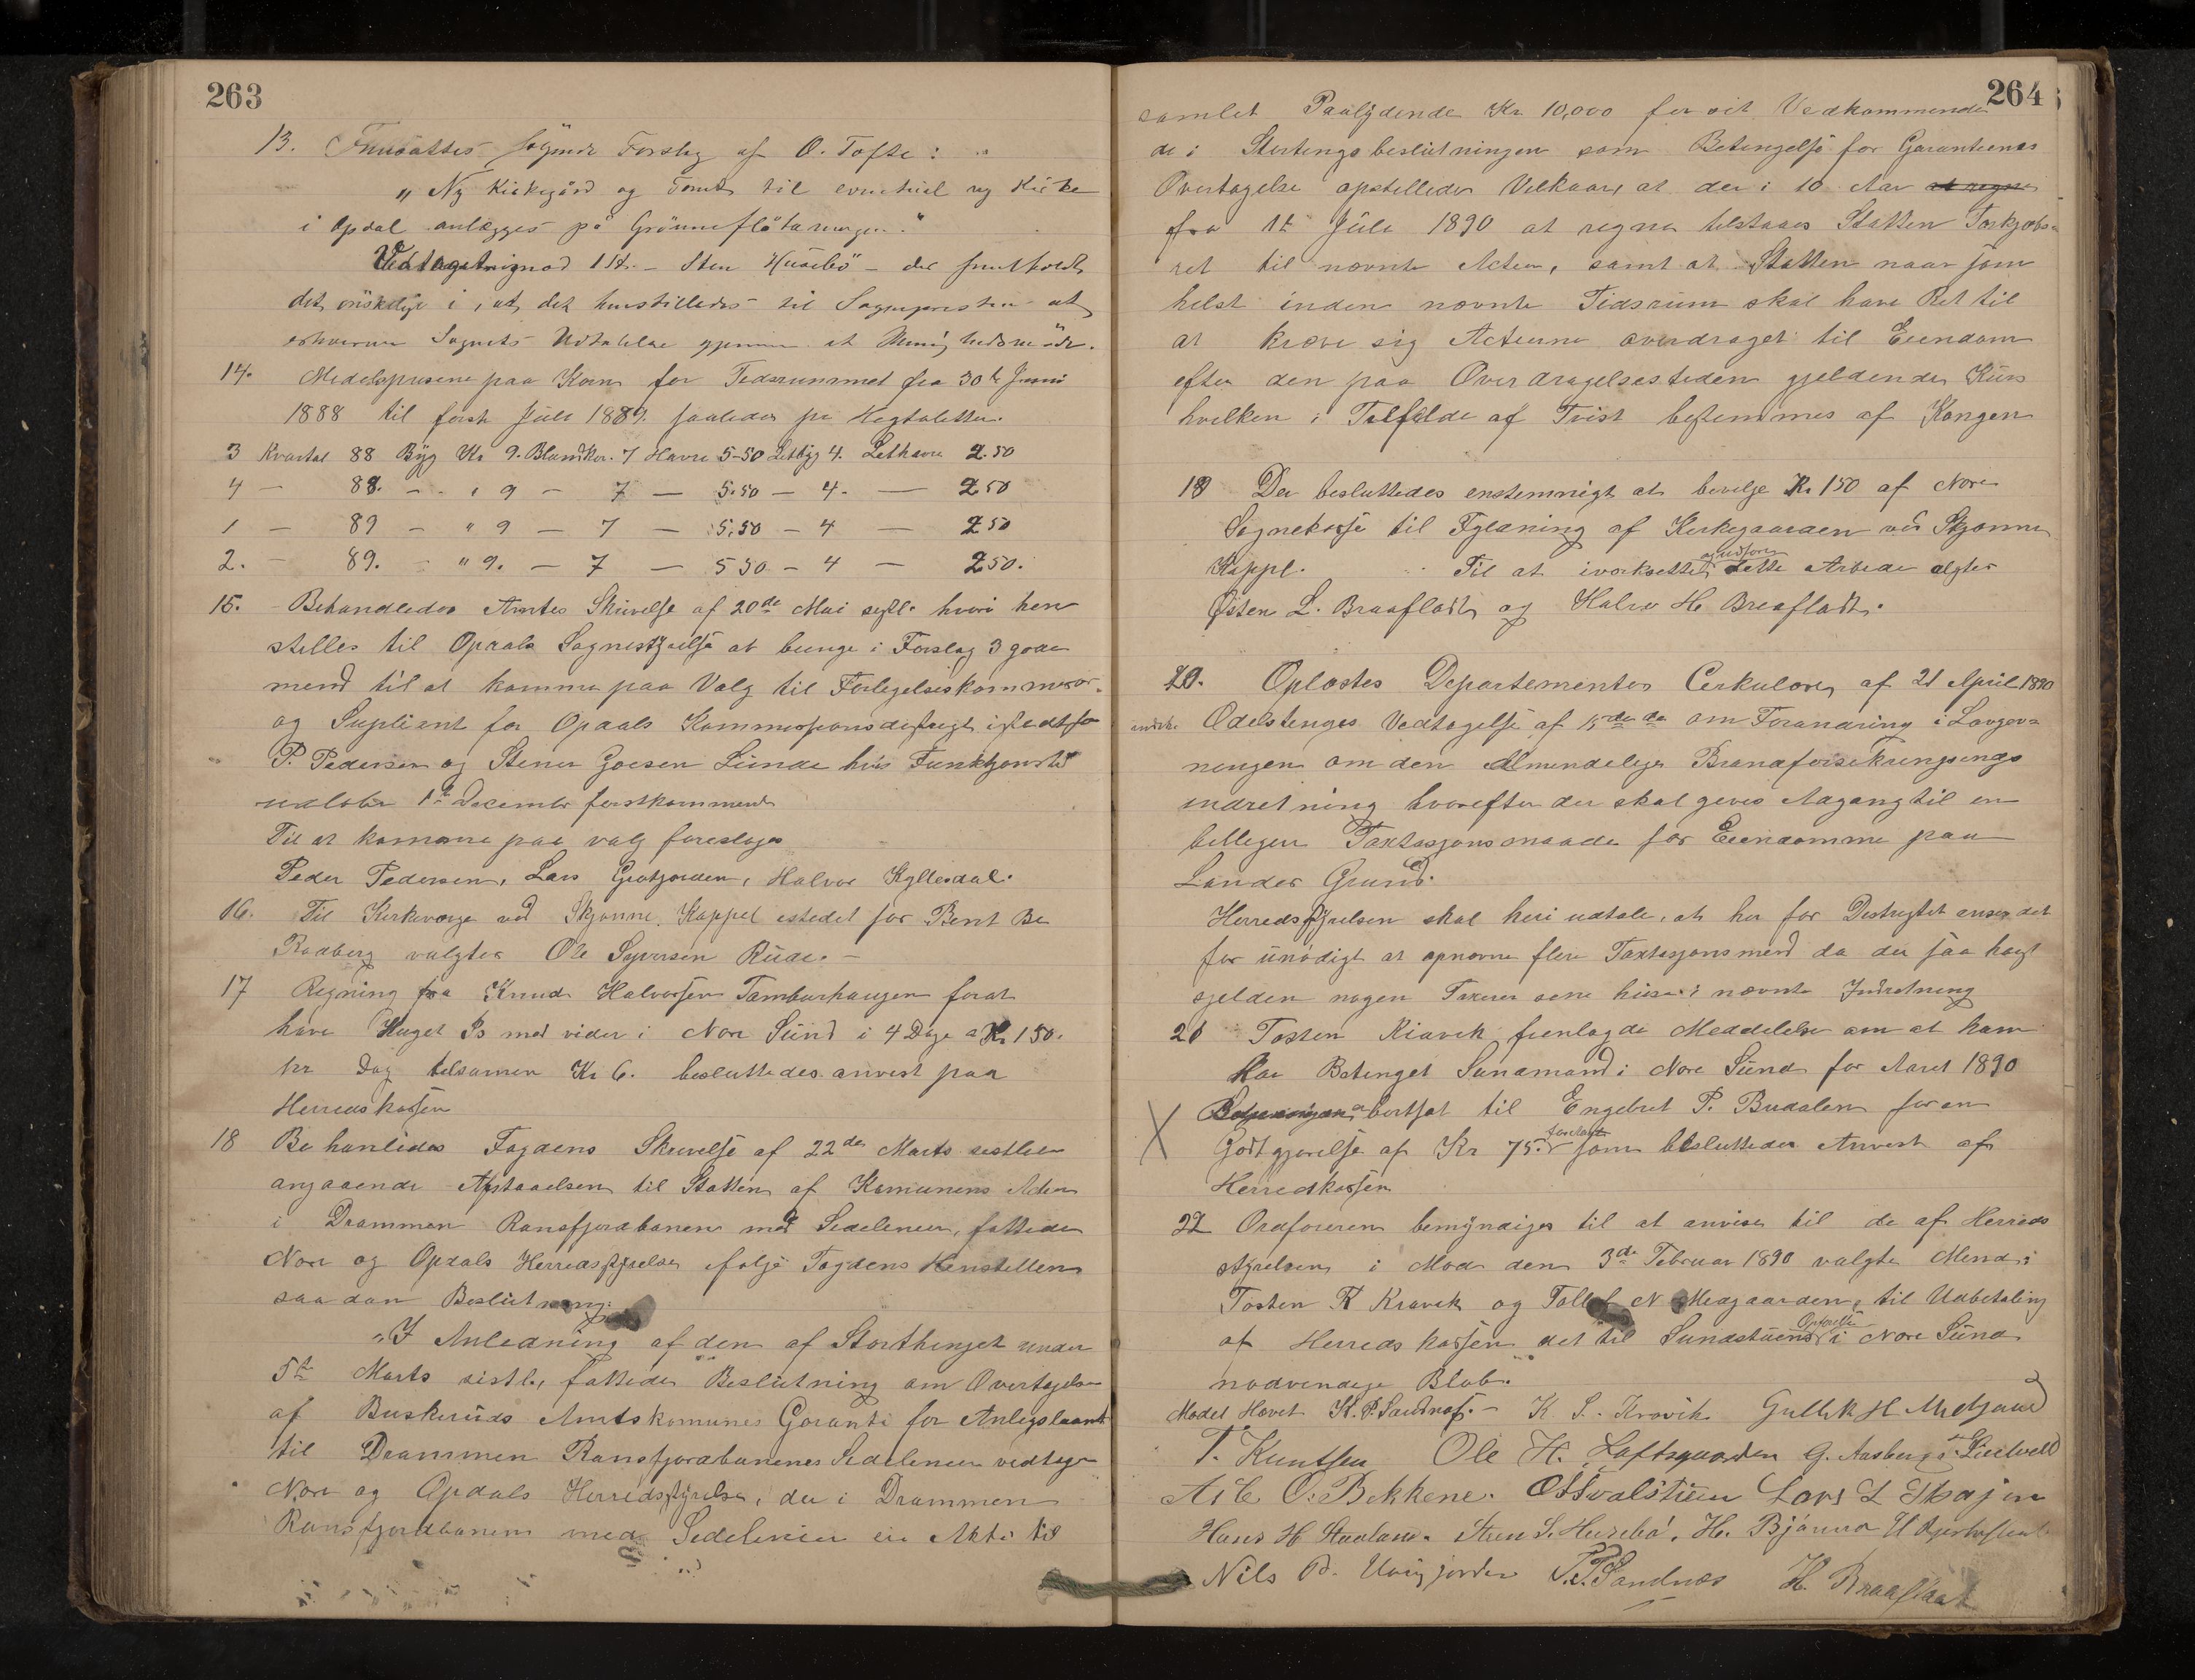 263
13. Fremsattes følgende Forslag af O. Tofte:
„Ny Kirkegård og Tomt til eventuel ny Kirke
i Opdal anlægges på Grønneflåtamogen."
Vedtaget mod 1 St. - Sten Husebö - der fremholdt
det ønskelige i, at det henstilledes til Sognepresten at
erhverve Sognets Udtalelse gjennem et Menighedsmöde.
14. Medelspriserne paa Korn for Tidsrummet fra 30te Juni
1888 til förste Juli 1889. saaledes pr Hegtoletter.
3 Kvartal 88 Byg Kr 9. Blandkor. 7 Havre 5-50 Letbyg 4. Lethavre 2.50
4 — 88. - - „ 9 — 7 — 5.50 — 4. — 2 50
1 — 89 — „ 9 — 7 — 5,50 — 4 — 2 50
2. — 89. — „ 9. — 7 — 5 50 — 4 — 2 50.
15. Behandledes Amtes Skrivelse af 20de Mai sistl. hvori hen
stilles til Opdals Sognestyrelse at bringe i Forslag 3 gode
mend til at komme paa Valg til Forligelseskommisær
og Supliant for Opdals Kommissionsdistrigt istedtfor
P. Pedersen og Stener Goesen Lunde hvis Funktjonstid
udlober 1te December forstkommende
Til at komme paa valg foresloges
Peder Pedersen, Lars Grotjorden, Halvor Kyllesdal.
16. Til Kirkeverge ved Skjonne Kappel istedet for Bent Be
Rodberg valgtes Ole Syversen Rude. —
17 Regning fra Knud Halvorsen Tamburhaugen for at
have Huget Is med vider i Nore Sund i 4 Dage a Kr 1 50.
pr Dag tilsamen Kr 6. besluttedes anvist paa
Herredskassen
18 Behanlides Fogdens Skrivelse af 22de Marts sistleden
angaaende Afstaaelsen til Statten af Komunens Actier
i Drammen Ransfjordbanen med Sidelinier, fattedes
Nore og Opdals Herredsstyrelse ifolge Fogdens Henstillen
saadan Beslutning:
„I Anledning af den af Storthinget under
5te Marts sistl, fattede Beslutning om Overtagelse
af Buskeruds Amtskomunes Garanti for Anlegslaanet
til Drammen Ransfjordbanenes Sidelinier vedtager
Nore og Opdals Herredsstyrelse, der i Drammen
Ransfjordbanen med Sidelinier eier Aktier til
264
samlet Paalydende Kr 10,000 for sit Vedkommende
de i Stortingsbeslutningen som Betingelse for Garantienes
Overtagelse opstillede Velkaar, at der i 10 Aar at regne
fra 1te Juli 1890 at regne tilstaaes Statten Forkjøbs-
ret til nævnte Actier, samt at Statten naar som
helst inden nævnte Tidsrum skal have Ret til
at kræve sig Actierne overdraget til Eiendom
efter den paa Overdragelsestiden gjeldende Kurs
hvilken i Tilfelde af Tvist bestemmes af Kongen
19 Der besluttedes enstemmigt at bevilge Kr 150 af Nore
Sognekasse til Fyldning af Kirkegaarden ved Skjønne
Kappl. Til at iverksette og udføre dette Arbeide valgtes
Østen L. Braafladt og Halvor H. Braafladt.
20. Oplæstes Departementes Cirkulære af 21 April 1890
Odelstinges Vedtagelse af 15de ds om Forandring i Lovgiv-
ningen om den Almindelige Brandforsikrings
indretning hvorefter der skal gives Adgang til en
billigere Taxtasjonsmaade for Eiendomme paa
Landes Grund.
Herredsstyrelsen skal heri udtale, at her for Destrigtet anses det
for unødigt at opnevne flere Taxtasjonsmend da der saa høgst
sjelden nogen Taxerer sine huse i nævnte Indretning
21 Tosten Kravik fremlagde Meddelelse om at ham
har Betinget Sundmand i Nore Sund for Aaret 1890
bortsat til Engebret P. Budalen for en
Godtgjørelse af Kr 75. som besluttedes Anvist af
Herredskassen
22 Ordforeren bemyndiges til at anvise til de af Herreds
styrelsen i Mode den 3de Februar 1890 valgte Mend:
Tosten K Kravik og Tollef N Medgaarden, til Udbetaling
af Herredskassen det til Sundstuens Opførelse i Nore Sund
nødvendige Beløb.
Mødet Hævet K. P. Sandnæs. — K. S. Kravik Gullik H Midtgaard
T. Knutsen Ole H. Loftsgaarden G. Aasberg
O. Bekkene. Lars L Skajen
Hans H Staaland. Sten S. Husebö. H. Bjønnerø
Nils P. P. Sandnæs H. Braaflaat